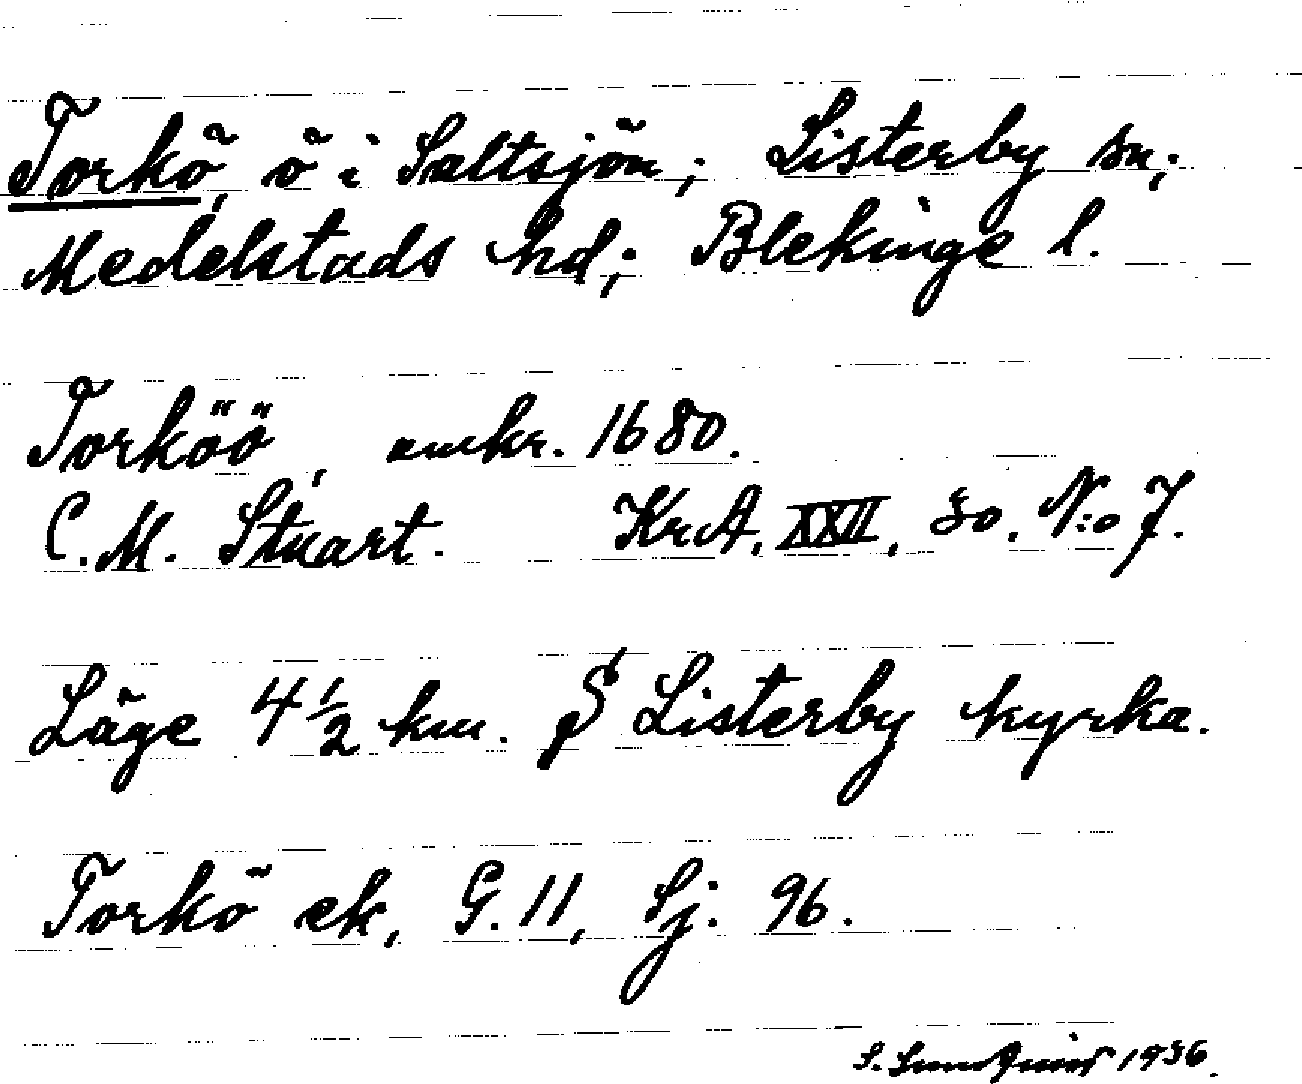 Torkö, ö i Saltsjön; Listerby sn;
Medelstads hd; Blekinge l.
Torköö, omkr. 1680.
C.M. Stuart. KrA, XXII, 30. N:o 7.
Läge 4 1/2 km. S Listerby kyrka.
Torkö ek, G. 11, Sj: 96.
S. Lundquist 1936.